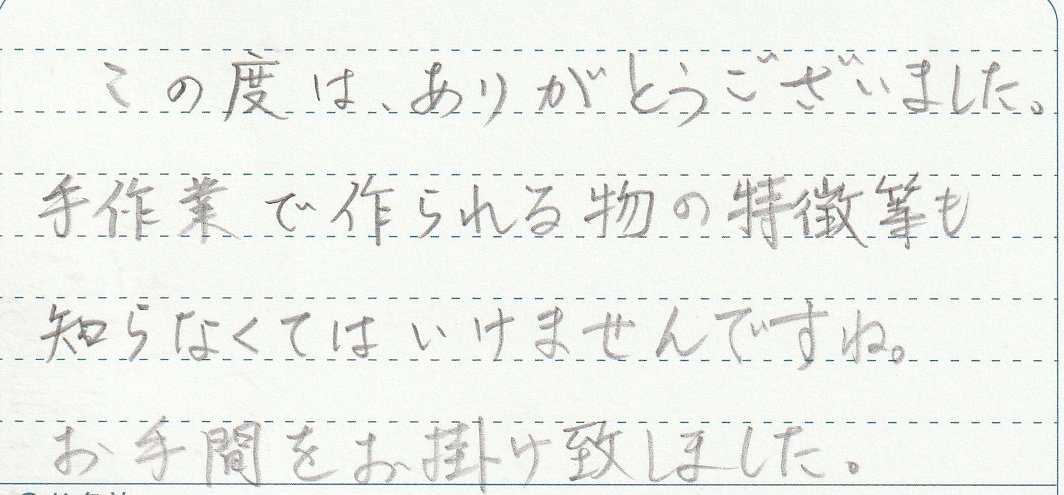 この度は、ありがとうございました。
手作業で作られる物の特徴等も
知らなくてはいけませんですね。
お手間をお掛け致しました。